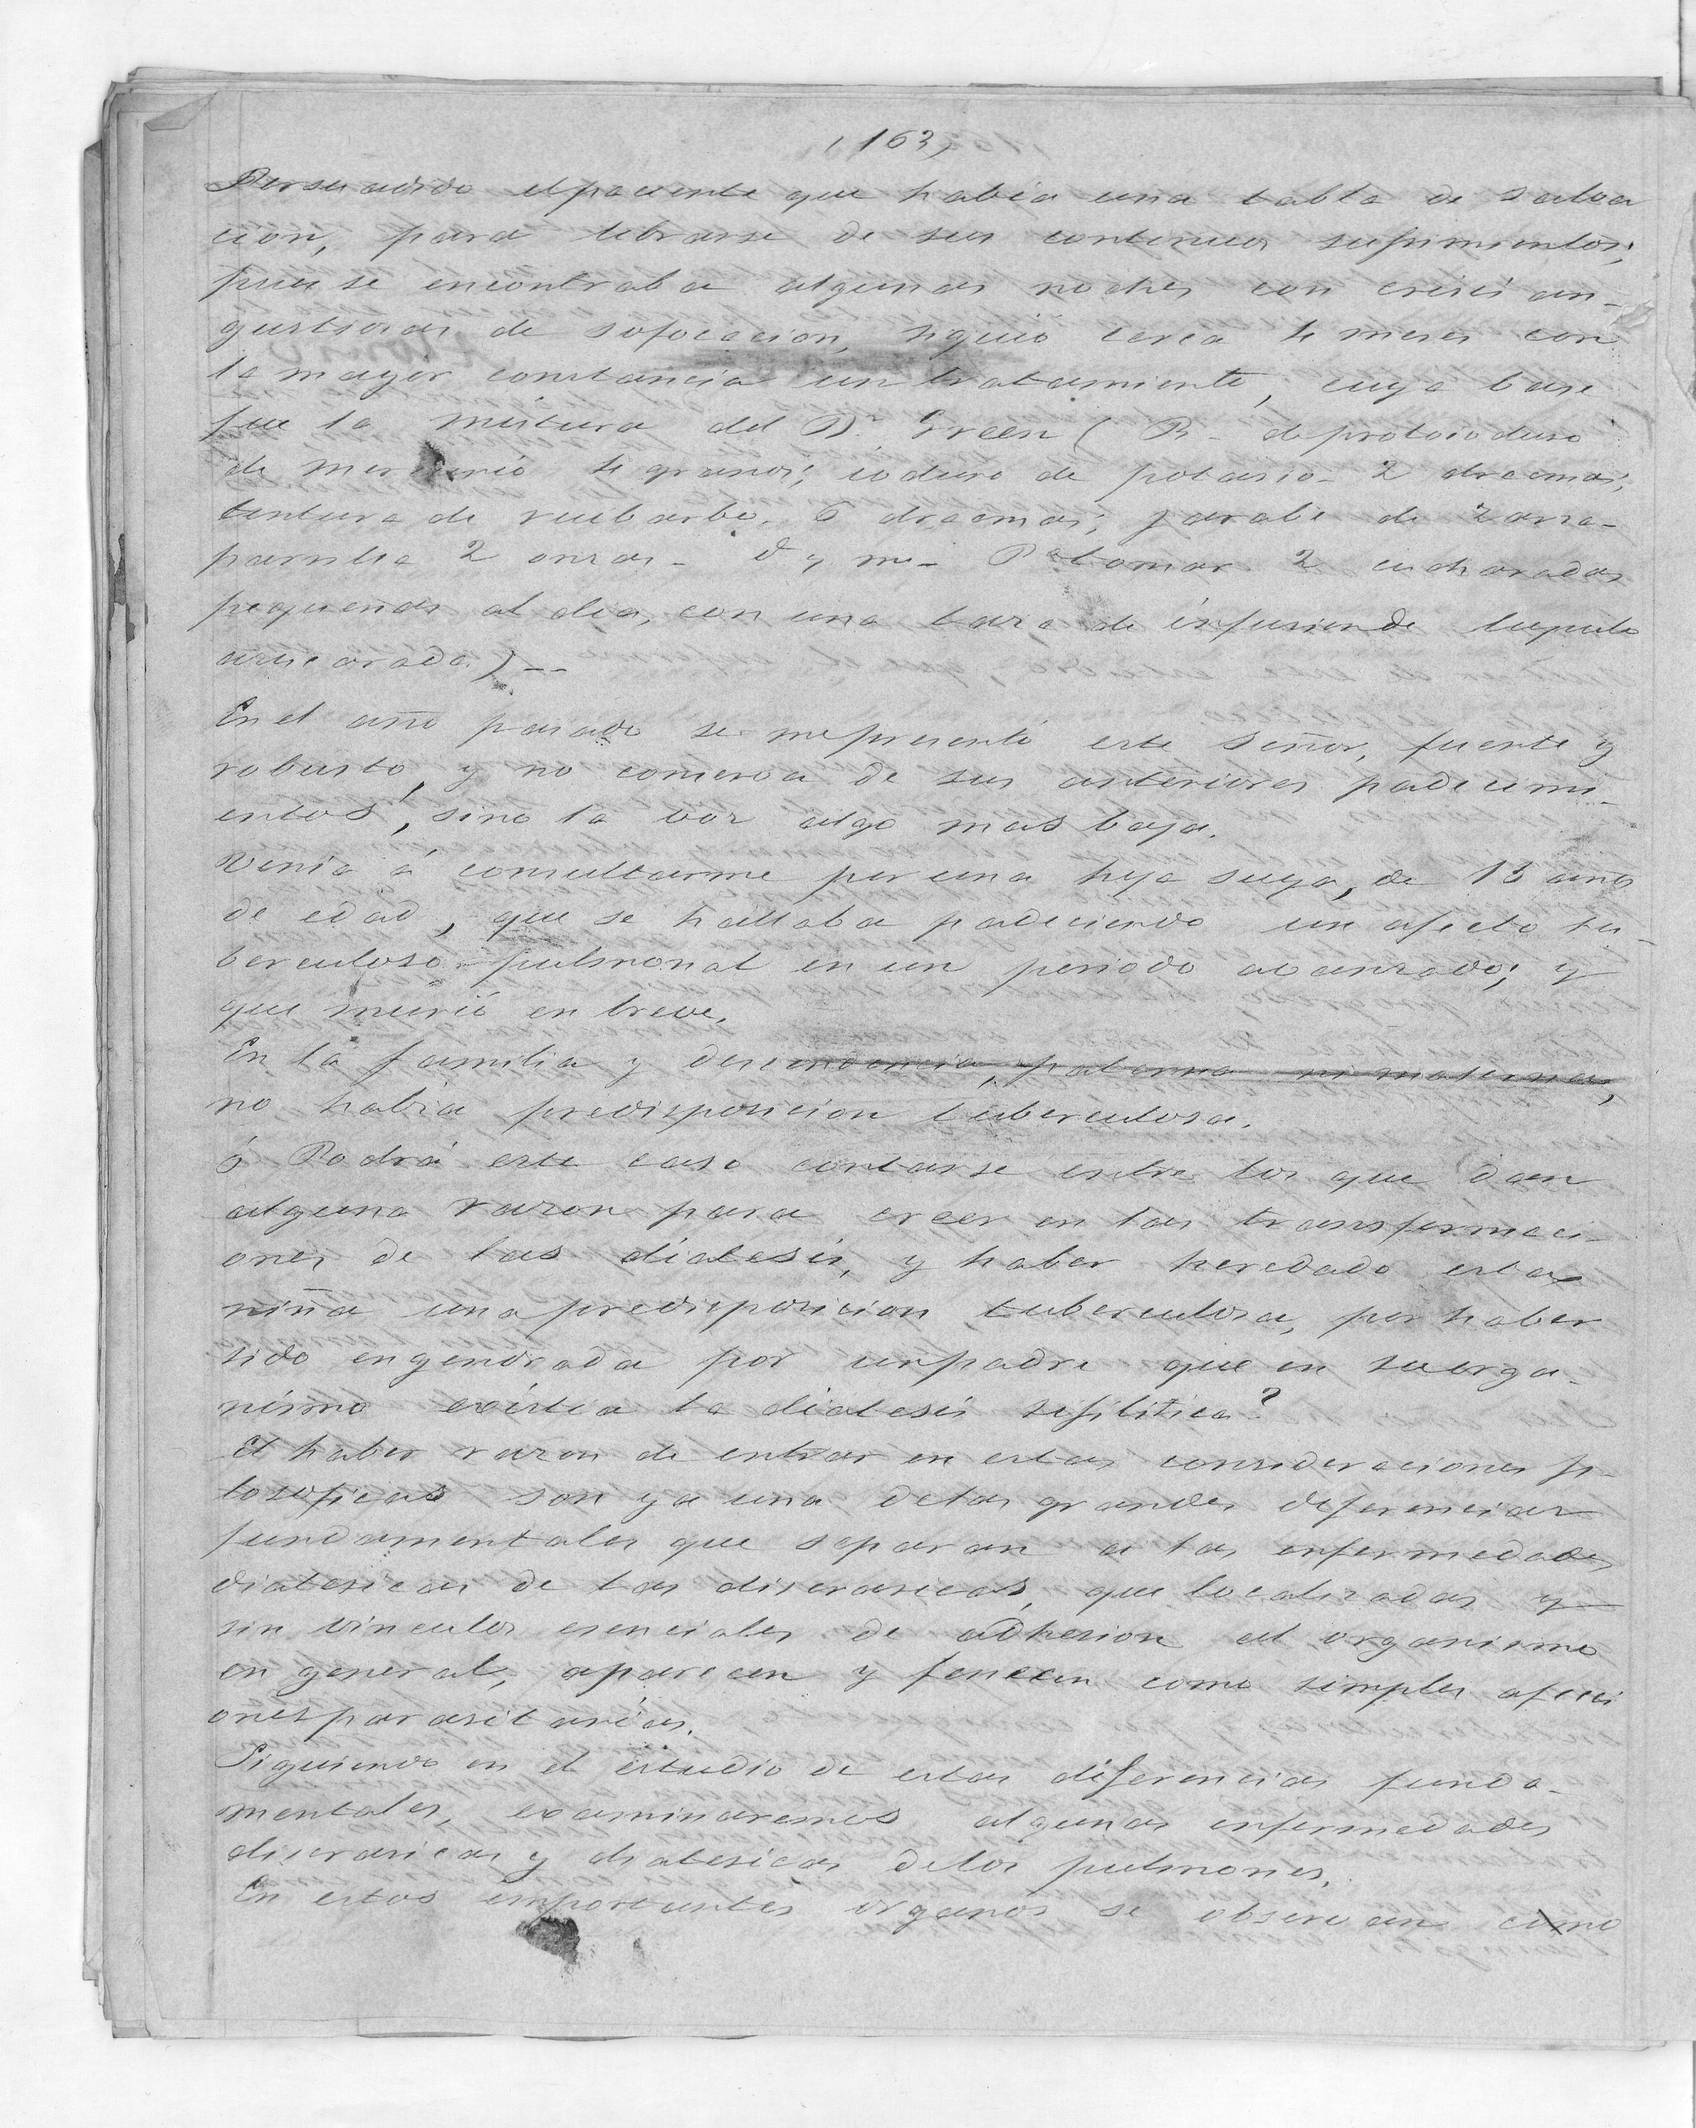 (163)
Persuadido el paciente que habia una tabla de salva
cion, para librarse de sus continuos sufrimientos;
pues se encontraba algunas noches con crisis an-
gustiosas de sofocacion, siguió cerca 4 meses con
la mayor constancia un tratamiento, cuya base
fue la mistura del Dr. Green ( R- de protoioduro
de mercurio 4 granos; ioduro de potasio- 2 dracmas;
tintura de ruibarbo. 6 dracmas; jarabe de zarza-
parrilla 2 onzas- d y m- Pa tomar 2 cucharadas
pequeñas al dia, con una taza de infusion de lupulo
azucarada) --
En el año pasado se me presentó este Señor, fuerte y
robusto, y no conserva de sus anteriores padecimi-
entos, sino la voz algo mas baja.
Venia á consultarme por una hija suya, de 13 años
de edad, que se hallaba padeciendo un afecto tu-
berculoso pulmonal en un periodo avanzado; y
que murió en breve.
En la familia y descendencia, paterna ni materna,
no habia predisposicion tuberculosa.
¿ Podrá este caso contarse entre los que dan
alguna razon para creer en las transformaci-
ones de las diatesis, y haber heredado esta
niña una predisposicion tuberculosa, por haber
sido engendrada por un padre que en su orga-
nismo existia la diatesis sifilitica?
El haber razon de entrar en estas consideraciones fi-
losoficas son ya una de las grandes diferencias
fundamentales que separan a las enfermedades
diatesicas de las discrasicas, que localizadas y
sin vinculos esenciales de adhesion al organismo
en general, aparecen y fenecen como simples afecci
ones parasitarias.
Siguiendo en el estudio de estas diferencias funda-
mentales, examinaremos algunas enfermedades
discrasicas y diatesicas de los pulmones.
En estos importantes organos se observan como